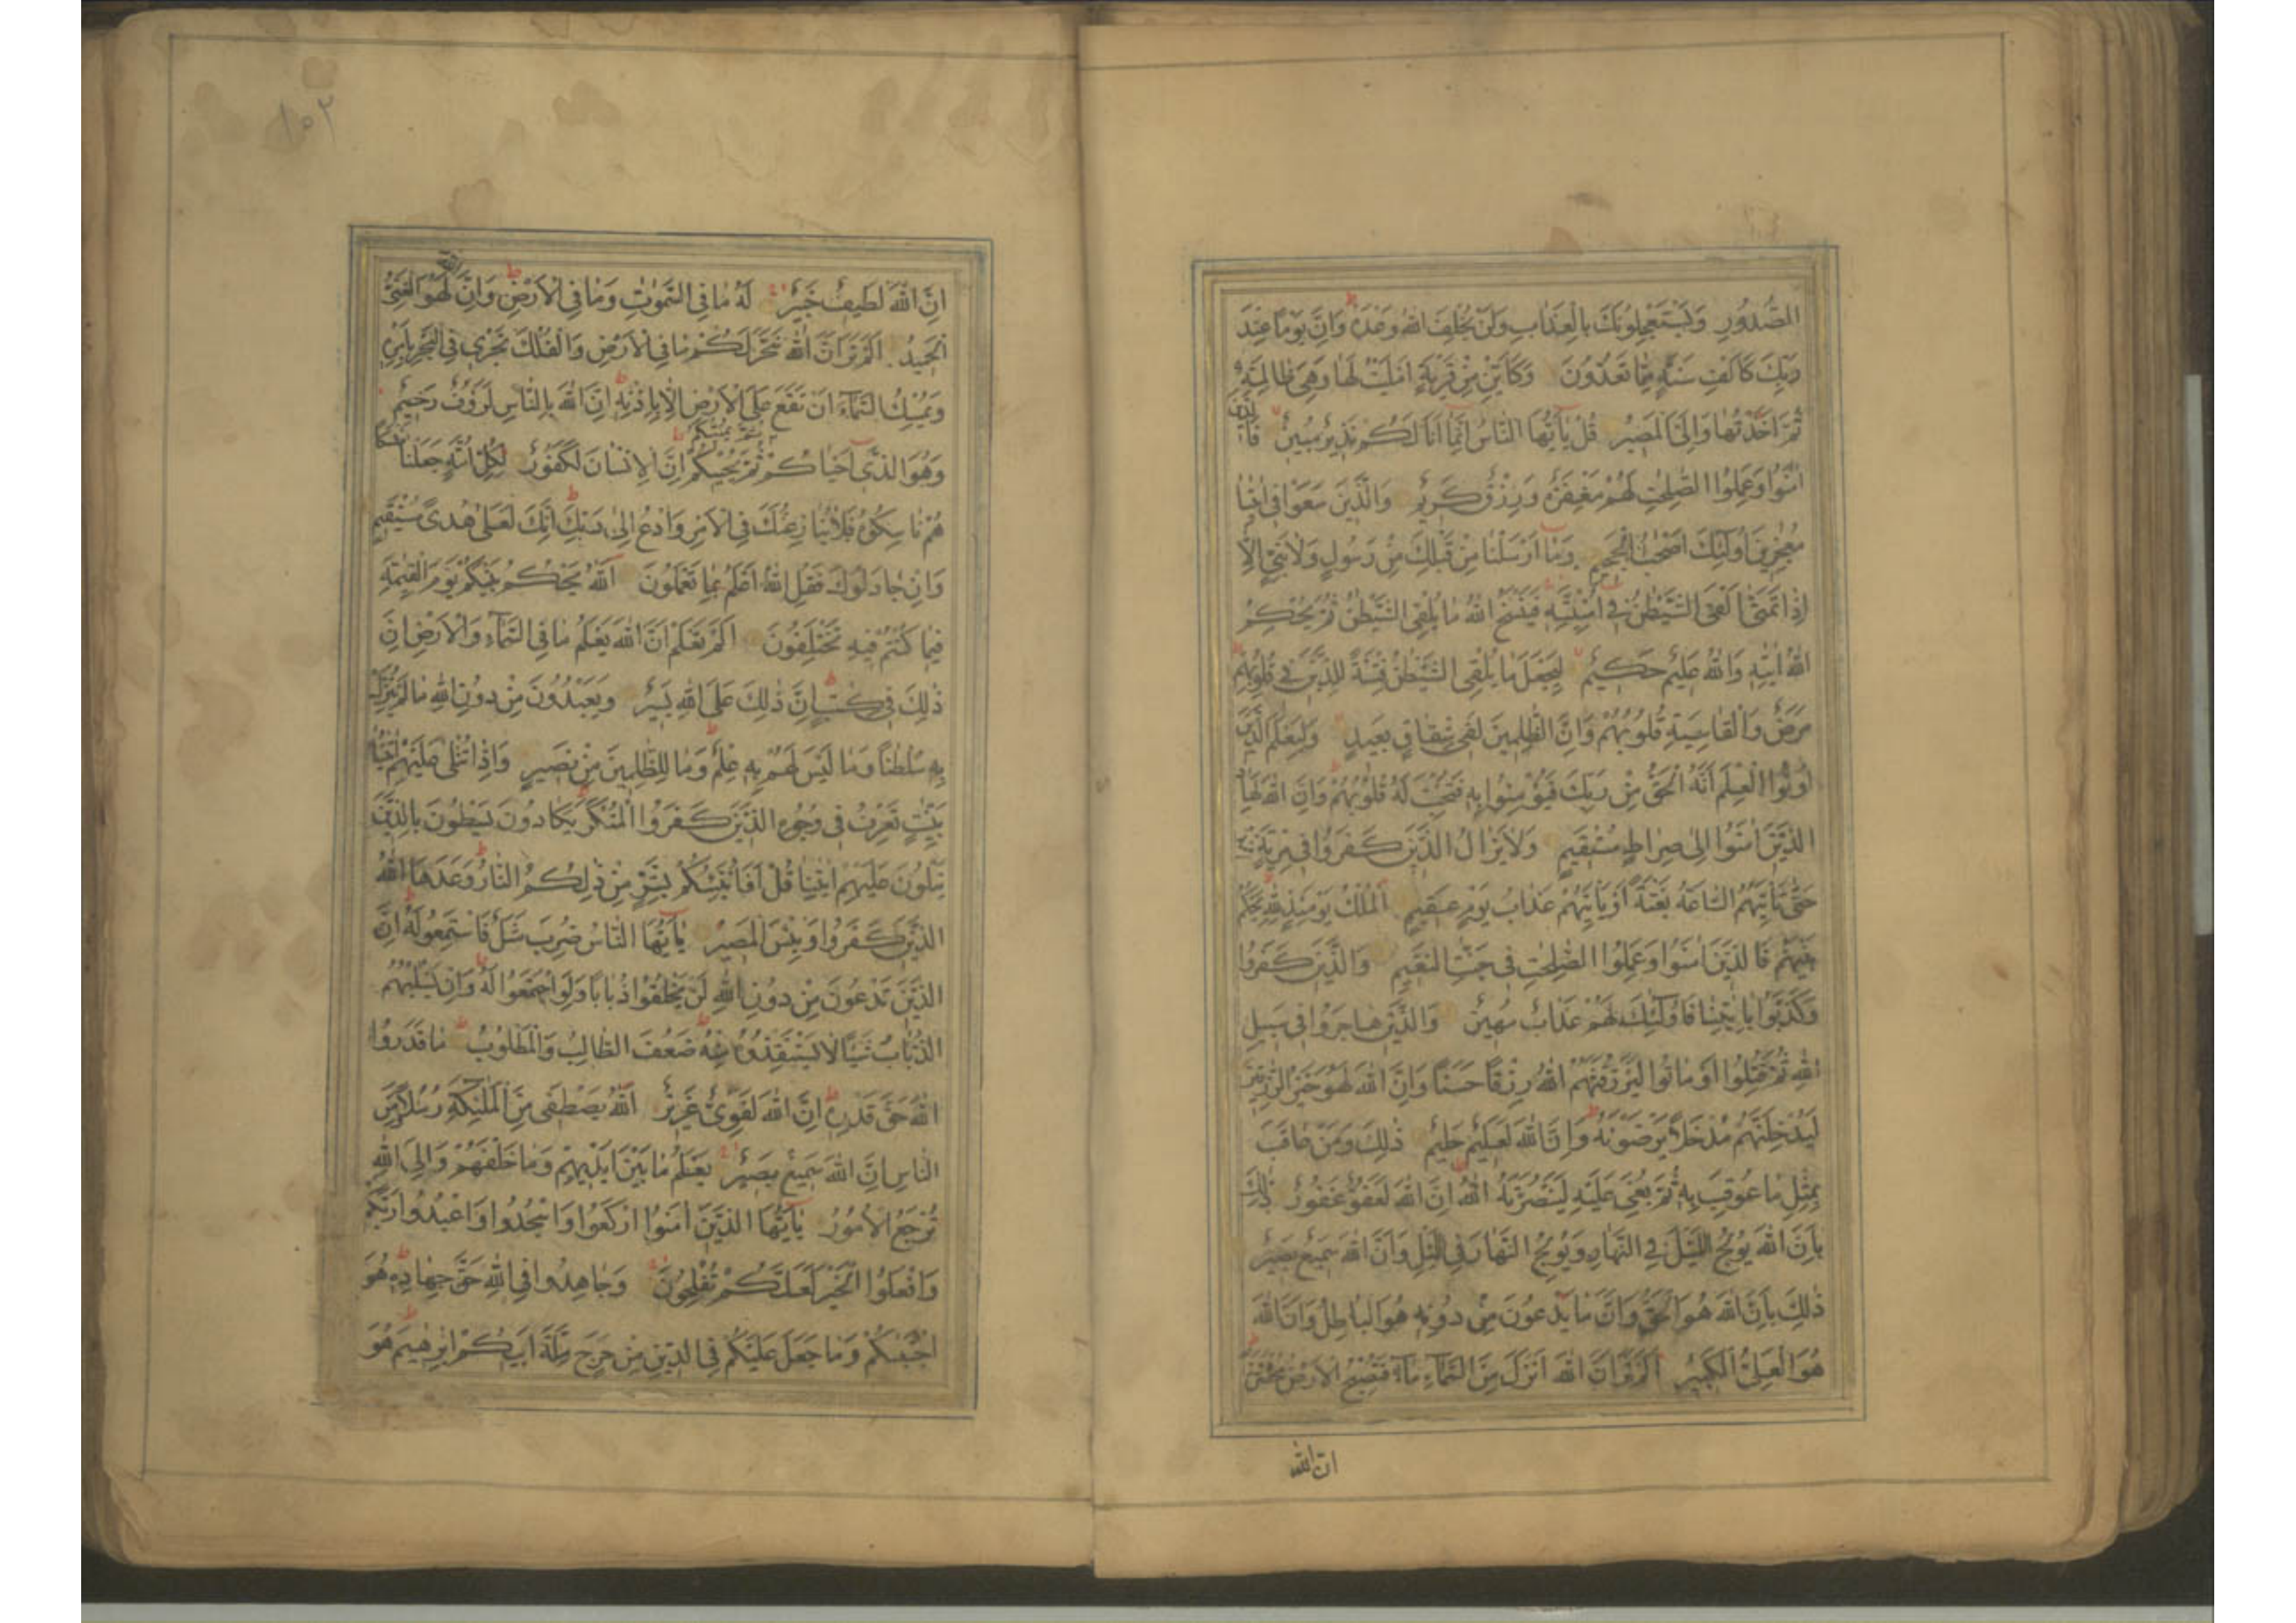 الصُّدُورِ وَيَسْتَعْجِلُونَكَ بِالْعَذَابِ وَلَنْ يُخْلِفَ اللهُ وَعْدَهُ وَاِنَّ يَوْمًا عِنْدَ
رَبِّكَ كَاَلْفِ سَنَةٍ مِمَّا تَعُدُّونَ وَكَاَيِّنْ مِنْ قَرْيَةٍ اَمْلَيْتُ لَهَا وَهِيَ ظَالِمَةٌ
ثُمَّ اَخَذْتُهَا وَاِلَيَّ الْمَصِيرُ قُلْ يٰٓاَيُّهَا النَّاسُ اِنَّمَا اَنَا لَكُمْ نَذِيرٌ مُبِينٌ فَالَّذِينَ
اٰمَنُوا وَعَمِلُوا الصّٰلِحٰتِ لَهُمْ مَغْفِرَةٌ وَرِزْقٌ كَرِيمٌ وَالَّذِينَ سَعَوْا فِي اٰيٰتِنَا
مُعٰجِزِينَ اُولٰٓئِكَ اَصْحٰبُ الْجَحِيمِ وَمَا اَرْسَلْنَا مِنْ قَبْلِكَ مِنْ رَسُولٍ وَلَا نَبِيٍّ اِلَّا
اِذَا تَمَنّٰى اَلْقَى الشَّيْطٰنُ فِي اُمْنِيَّتِهِ فَيَنْسَخُ اللهُ مَا يُلْقِي الشَّيْطٰنُ ثُمَّ يُحْكِمُ
اللهُ اٰيٰتِهِ وَاللهُ عَلِيمٌ حَكِيمٌ لِيَجْعَلَ مَا يُلْقِي الشَّيْطٰنُ فِتْنَةً لِلَّذِينَ فِي قُلُوبِهِمْ
مَرَضٌ وَالْقَاسِيَةِ قُلُوبُهُمْ وَاِنَّ الظّٰلِمِينَ لَفِي شِقَاقٍ بَعِيدٍ وَلِيَعْلَمَ الَّذِينَ
اُوتُوا الْعِلْمَ اَنَّهُ الْحَقُّ مِنْ رَبِّكَ فَيُؤْمِنُوا بِهِ فَتُخْبِتَ لَهُ قُلُوبُهُمْ وَاِنَّ اللهَ لَهَادِ
الَّذِينَ اٰمَنُوا اِلٰى صِرَاطٍ مُسْتَقِيمٍ وَلَا يَزَالُ الَّذِينَ كَفَرُوا فِي مِرْيَةٍ مِنْهُ
حَتّٰى تَاْتِيَهُمُ السَّاعَةُ بَغْتَةً اَوْ يَاْتِيَهُمْ عَذَابُ يَوْمٍ عَقِيمٍ اَلْمُلْكُ يَوْمَئِذٍ لِلّٰهِ يَحْكُمُ
بَيْنَهُمْ فَالَّذِينَ اٰمَنُوا وَعَمِلُوا الصّٰلِحٰتِ فِي جَنّٰتِ النَّعِيمِ وَالَّذِينَ كَفَرُوا
وَكَذَّبُوا بِاٰيٰتِنَا فَاُولٰٓئِكَ لَهُمْ عَذَابٌ مُهِينٌ وَالَّذِينَ هَاجَرُوا فِي سَبِيلِ
اللهِ ثُمَّ قُتِلُوا اَوْ مَاتُوا لَيَرْزُقَنَّهُمُ اللهُ رِزْقًا حَسَنًا وَاِنَّ اللهَ لَهُوَ خَيْرُ الرّٰزِقِينَ
لَيُدْخِلَنَّهُمْ مُدْخَلًا يَرْضَوْنَهُ وَاِنَّ اللهَ لَعَلِيمٌ حَلِيمٌ ذٰلِكَ وَمَنْ عَاقَبَ
بِمِثْلِ مَا عُوقِبَ بِهِ ثُمَّ بُغِيَ عَلَيْهِ لَيَنْصُرَنَّهُ اللهُ اِنَّ اللهَ لَعَفُوٌّ غَفُورٌ ذٰلِكَ
بِاَنَّ اللهَ يُولِجُ اللَّيْلَ فِي النَّهَارِ وَيُولِجُ النَّهَارَ فِي اللَّيْلِ وَاَنَّ اللهَ سَمِيعٌ بَصِيرٌ
ذٰلِكَ بِاَنَّ اللهَ هُوَ الْحَقُّ وَاَنَّ مَا يَدْعُونَ مِنْ دُونِهِ هُوَ الْبَاطِلُ وَاَنَّ اللهَ
هُوَ الْعَلِيُّ الْكَبِيرُ اَلَمْ تَرَ اَنَّ اللهَ اَنْزَلَ مِنَ السَّمَاءِ مَاءً فَتُصْبِحُ الْاَرْضُ مُخْضَرَّةً
ان الله
١٥٢
اِنَّ اللهَ لَطِيفٌ خَبِيرٌ لَهُ مَا فِي السَّمٰوٰتِ وَمَا فِي الْاَرْضِ وَاِنَّ اللهَ لَهُوَ الْغَنِيُّ
الْحَمِيدُ اَلَمْ تَرَ اَنَّ اللهَ سَخَّرَ لَكُمْ مَا فِي الْاَرْضِ وَالْفُلْكَ تَجْرِي فِي الْبَحْرِ بِاَمْرِهِ
وَيُمْسِكُ السَّمَاءَ اَنْ تَقَعَ عَلَى الْاَرْضِ اِلَّا بِاِذْنِهِ اِنَّ اللهَ بِالنَّاسِ لَرَؤُفٌ رَحِيمٌ
وَهُوَ الَّذِي اَحْيَاكُمْ ثُمَّ يُمِيتُكُمْ ثُمَّ يُحْيِيكُمْ اِنَّ الْاِنْسَانَ لَكَفُورٌ لِكُلِّ اُمَّةٍ جَعَلْنَا مَنْسَكًا
هُمْ نَاسِكُوهُ فَلَا يُنَازِعُنَّكَ فِي الْاَمْرِ وَادْعُ اِلٰى رَبِّكَ اِنَّكَ لَعَلٰى هُدًى مُسْتَقِيمٍ
وَاِنْ جَادَلُوكَ فَقُلِ اللهُ اَعْلَمُ بِمَا تَعْمَلُونَ اَللهُ يَحْكُمُ بَيْنَكُمْ يَوْمَ الْقِيٰمَةِ
فِيمَا كُنْتُمْ فِيهِ تَخْتَلِفُونَ اَلَمْ تَعْلَمْ اَنَّ اللهَ يَعْلَمُ مَا فِي السَّمَاءِ وَالْاَرْضِ اِنَّ
ذٰلِكَ فِي كِتٰبٍ اِنَّ ذٰلِكَ عَلَى اللهِ يَسِيرٌ وَيَعْبُدُونَ مِنْ دُونِ اللهِ مَا لَمْ يُنَزِّلْ
بِهِ سُلْطٰنًا وَمَا لَيْسَ لَهُمْ بِهِ عِلْمٌ وَمَا لِلظّٰلِمِينَ مِنْ نَصِيرٍ وَاِذَا تُتْلٰى عَلَيْهِمْ اٰيٰتُنَا
بَيِّنٰتٍ تَعْرِفُ فِي وُجُوهِ الَّذِينَ كَفَرُوا الْمُنْكَرَ يَكَادُونَ يَسْطُونَ بِالَّذِينَ
يَتْلُونَ عَلَيْهِمْ اٰيٰتِنَا قُلْ اَفَاُنَبِّئُكُمْ بِشَرٍّ مِنْ ذٰلِكُمُ النَّارُ وَعَدَهَا اللهُ
الَّذِينَ كَفَرُوا وَبِئْسَ الْمَصِيرُ يٰٓاَيُّهَا النَّاسُ ضُرِبَ مَثَلٌ فَاسْتَمِعُوا لَهُ اِنَّ
الَّذِينَ تَدْعُونَ مِنْ دُونِ اللهِ لَنْ يَخْلُقُوا ذُبَابًا وَلَوِ اجْتَمَعُوا لَهُ وَاِنْ يَسْلُبْهُمُ
الذُّبَابُ شَيْئًا لَا يَسْتَنْقِذُوهُ مِنْهُ ضَعُفَ الطَّالِبُ وَالْمَطْلُوبُ مَا قَدَرُوا
اللهَ حَقَّ قَدْرِهِ اِنَّ اللهَ لَقَوِيٌّ عَزِيزٌ اَللهُ يَصْطَفِي مِنَ الْمَلٰٓئِكَةِ رُسُلًا وَمِنَ
النَّاسِ اِنَّ اللهَ سَمِيعٌ بَصِيرٌ يَعْلَمُ مَا بَيْنَ اَيْدِيهِمْ وَمَا خَلْفَهُمْ وَاِلَى اللهِ
تُرْجَعُ الْاُمُورُ يٰٓاَيُّهَا الَّذِينَ اٰمَنُوا ارْكَعُوا وَاسْجُدُوا وَاعْبُدُوا رَبَّكُمْ
وَافْعَلُوا الْخَيْرَ لَعَلَّكُمْ تُفْلِحُونَ وَجَاهِدُوا فِي اللهِ حَقَّ جِهَادِهِ هُوَ
اجْتَبٰكُمْ وَمَا جَعَلَ عَلَيْكُمْ فِي الدِّينِ مِنْ حَرَجٍ مِلَّةَ اَبِيكُمْ اِبْرٰهِيمَ هُوَ